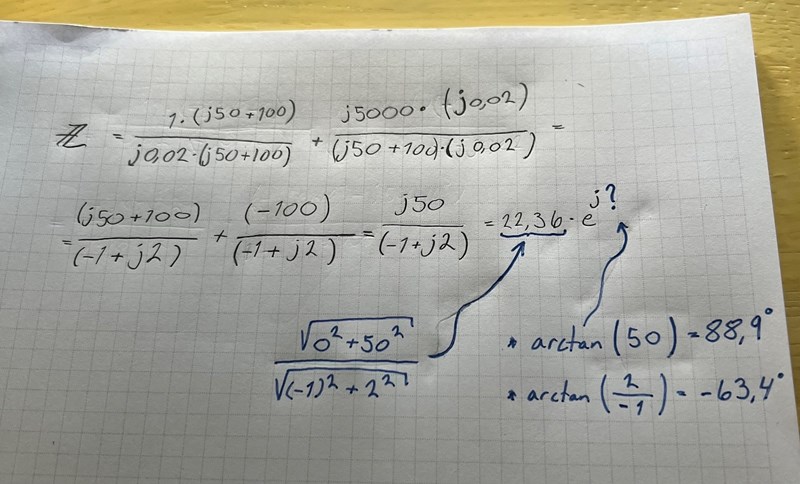 Z = 1·(j50+100) / j0,02·(j50+100) + j5000·(j0,02) / (j50+100)·(j0,02) =
= (j50+100) / (-1+j2) + (-100) / (-1+j2) = j50 / (-1+j2) = 22,36·e^j?
√0²+50² / √(-1)²+2²
* arctan (50) = 88,9°
* arctan (2/-1) = -63,4°